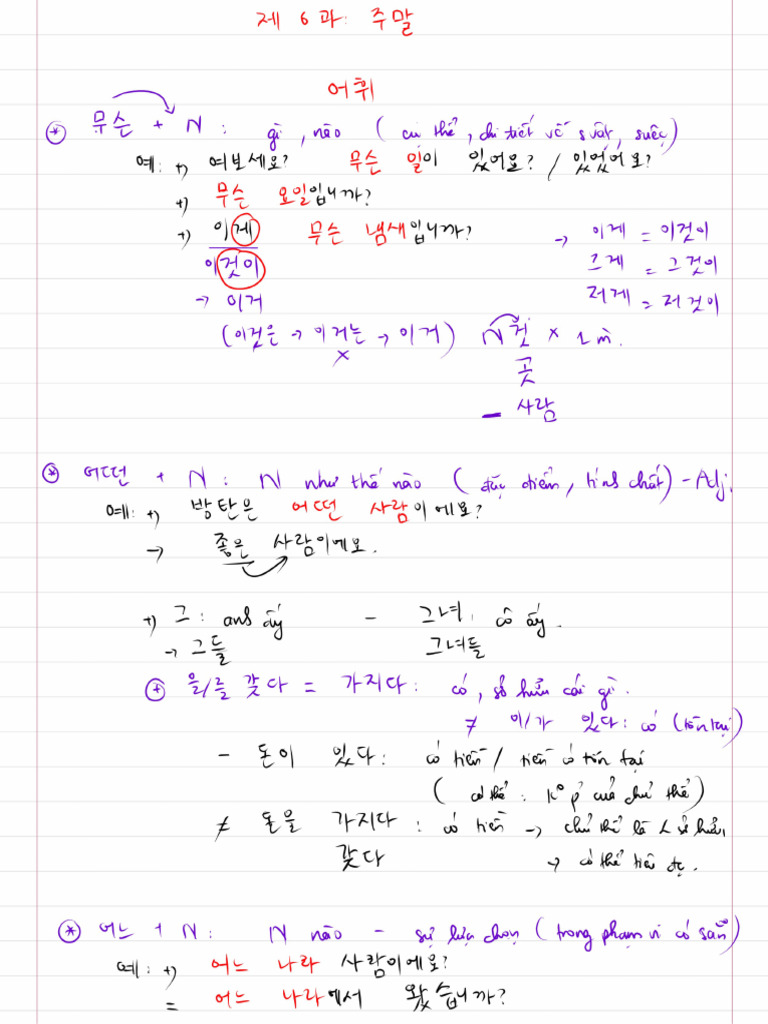 제 6 과: 주말
어휘
* 무슨 + N: gì, nào (cụ thể, chi tiết về sự vật, sự việc)
예: +, 여보세요? 무슨 일이 있어요? / 있었어요?
+, 무슨 요일입니까?
+, 이게 무슨 냄새입니까? → 이게 = 이것이
이것이 그게 = 그것이
→ 이거 저게 = 저것이
(이것은 → 이거는 → 이거) N 것 x 1m.
x 곳
– 사람
* 어떤 + N: N như thế nào (đặc điểm, tính chất) - Adj.
예: +, 방탄은 어떤 사람이에요?
→ 좋은 사람이에요.
+, 그: anh ấy – 그녀: cô ấy.
→ 그들 그녀들
+ 을/를 갖다 = 가지다: có, sở hữu cái gì.
≠ 이/가 있다: có (tồn tại)
– 돈이 있다: có tiền / tiền có tồn tại
(có thể: K° p' của chủ thể)
≠ 돈을 가지다: có tiền → chủ thể là sở hữu
갖다 → có thể tiêu đc.
* 어느 + N: N nào – sự lựa chọn (trong phạm vi có sẵn)
예: +, 어느 나라 사람이에요?
= 어느 나라에서 왔습니까?